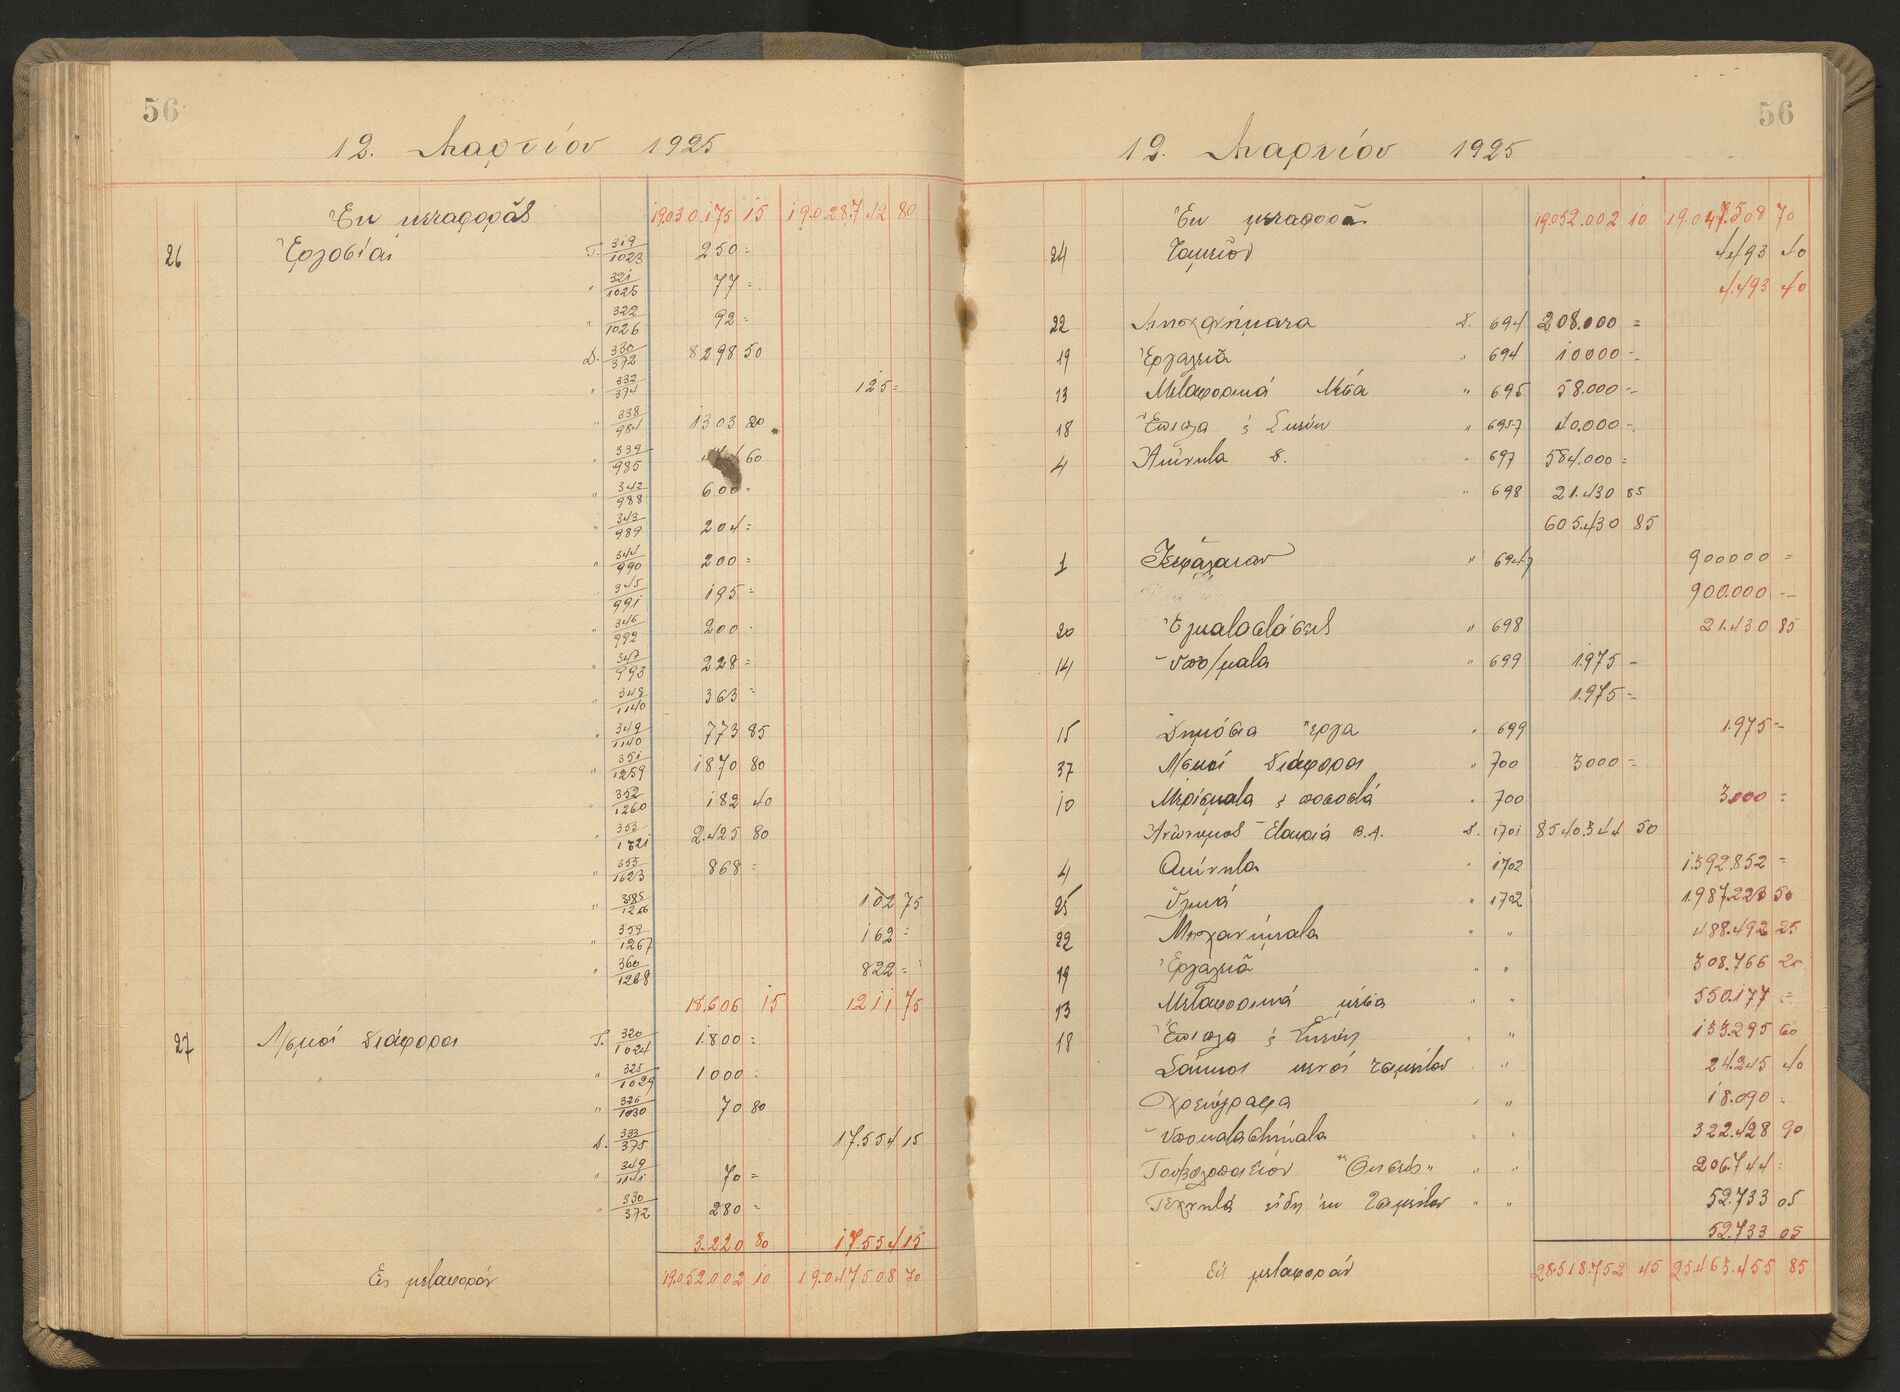 56
12. Μαρτίου 1925
Ἐκ μεταφορᾶς 19.030.175 15 19.028.742 80
26 Ἐργοσίαι Τ. 319/1023 250 =
" 321/1025 77 =
" 322/1026 92 =
Δ. 330/372 8298 50
" 332/374 125 =
" 338/984 1303 20
" 339/985 60
" 342/988 600 =
" 343/989 204 =
" 344/990 200 =
" 345/991 195 =
" 346/992 200 =
" 347/993 228 =
" 348/1140 363 =
" 349/1140 773 85
" 351/1259 1870 80
" 352/1260 182 40
" 353/1621 2.425 80
" 355/1623 868 =
" 385/1266 102 75
" 359/1267 162 =
" 360/1268 822 =
18.606 15 1211 75
27 Λ/σμοί διάφοροι Τ. 320/1024 1.800 =
" 325/1029 1000 =
" 326/1030 70 80
Δ. 333/375 17.554 15
" 349/1141 70 =
" 330/372 280 =
3.220 80 17.554 15
Εἰς μεταφοράν 19.052.002 10 19.047.508 70
56
12. Μαρτίου 1925
Ἐκ μεταφορᾶς 19.052.002 10 19.047.508 70
24 Ταμεῖον 4493 40
4.493 40
22 Μηχανήματα Δ. 694 208.000 =
19 Ἐργαλεῖα " 694 10000 =
13 Μεταφορικά Μέσα " 695 58.000 =
18 Ἔπιπλα & Σκεύη " 695-7 40.000 =
4 Ἀκίνητα Δ. " 697 584.000 =
" 698 21.430 85
605.430 85
1 Κεφάλαιον " 694-7 900000 =
900.000 =
20 Ἐγκαταστάσεις " 698 21.430 85
14 Ὑπο/ματα " 699 1.975 =
1.975 =
15 Δημόσια Ἔργα " 699 1.975 =
37 Λ/σμοί διάφοροι " 700 3000 =
10 Μερίσματα & ποσοστά " 700 3.000 =
Ἀνώνυμος Ἑταιρία Β.Α. Δ. 1701 8540.344 50
4 Ἀκίνητα " 1702 1.392.852 =
25 Ὑλικά " 1702 1.987.223 50
22 Μηχανήματα " " 488.492 25
19 Ἐργαλεῖα " " 308.766 20
13 Μεταφορικά μέσα " " 550.177 =
18 Ἔπιπλα & Σκεύη " " 133.295 60
Σάκκοι κενοί ταμείου " " 24.245 40
Χρεώγραφα " " 18.090 =
Ὑποκαταστήματα " " 322.428 90
Τουβλοποιεῖον " " 206.744 =
Τεχνητά εἴδη ἐν ταμείῳ " " 52.733 05
52.733 05
Εἰς μεταφοράν 28.518.752 45 25.463.455 85